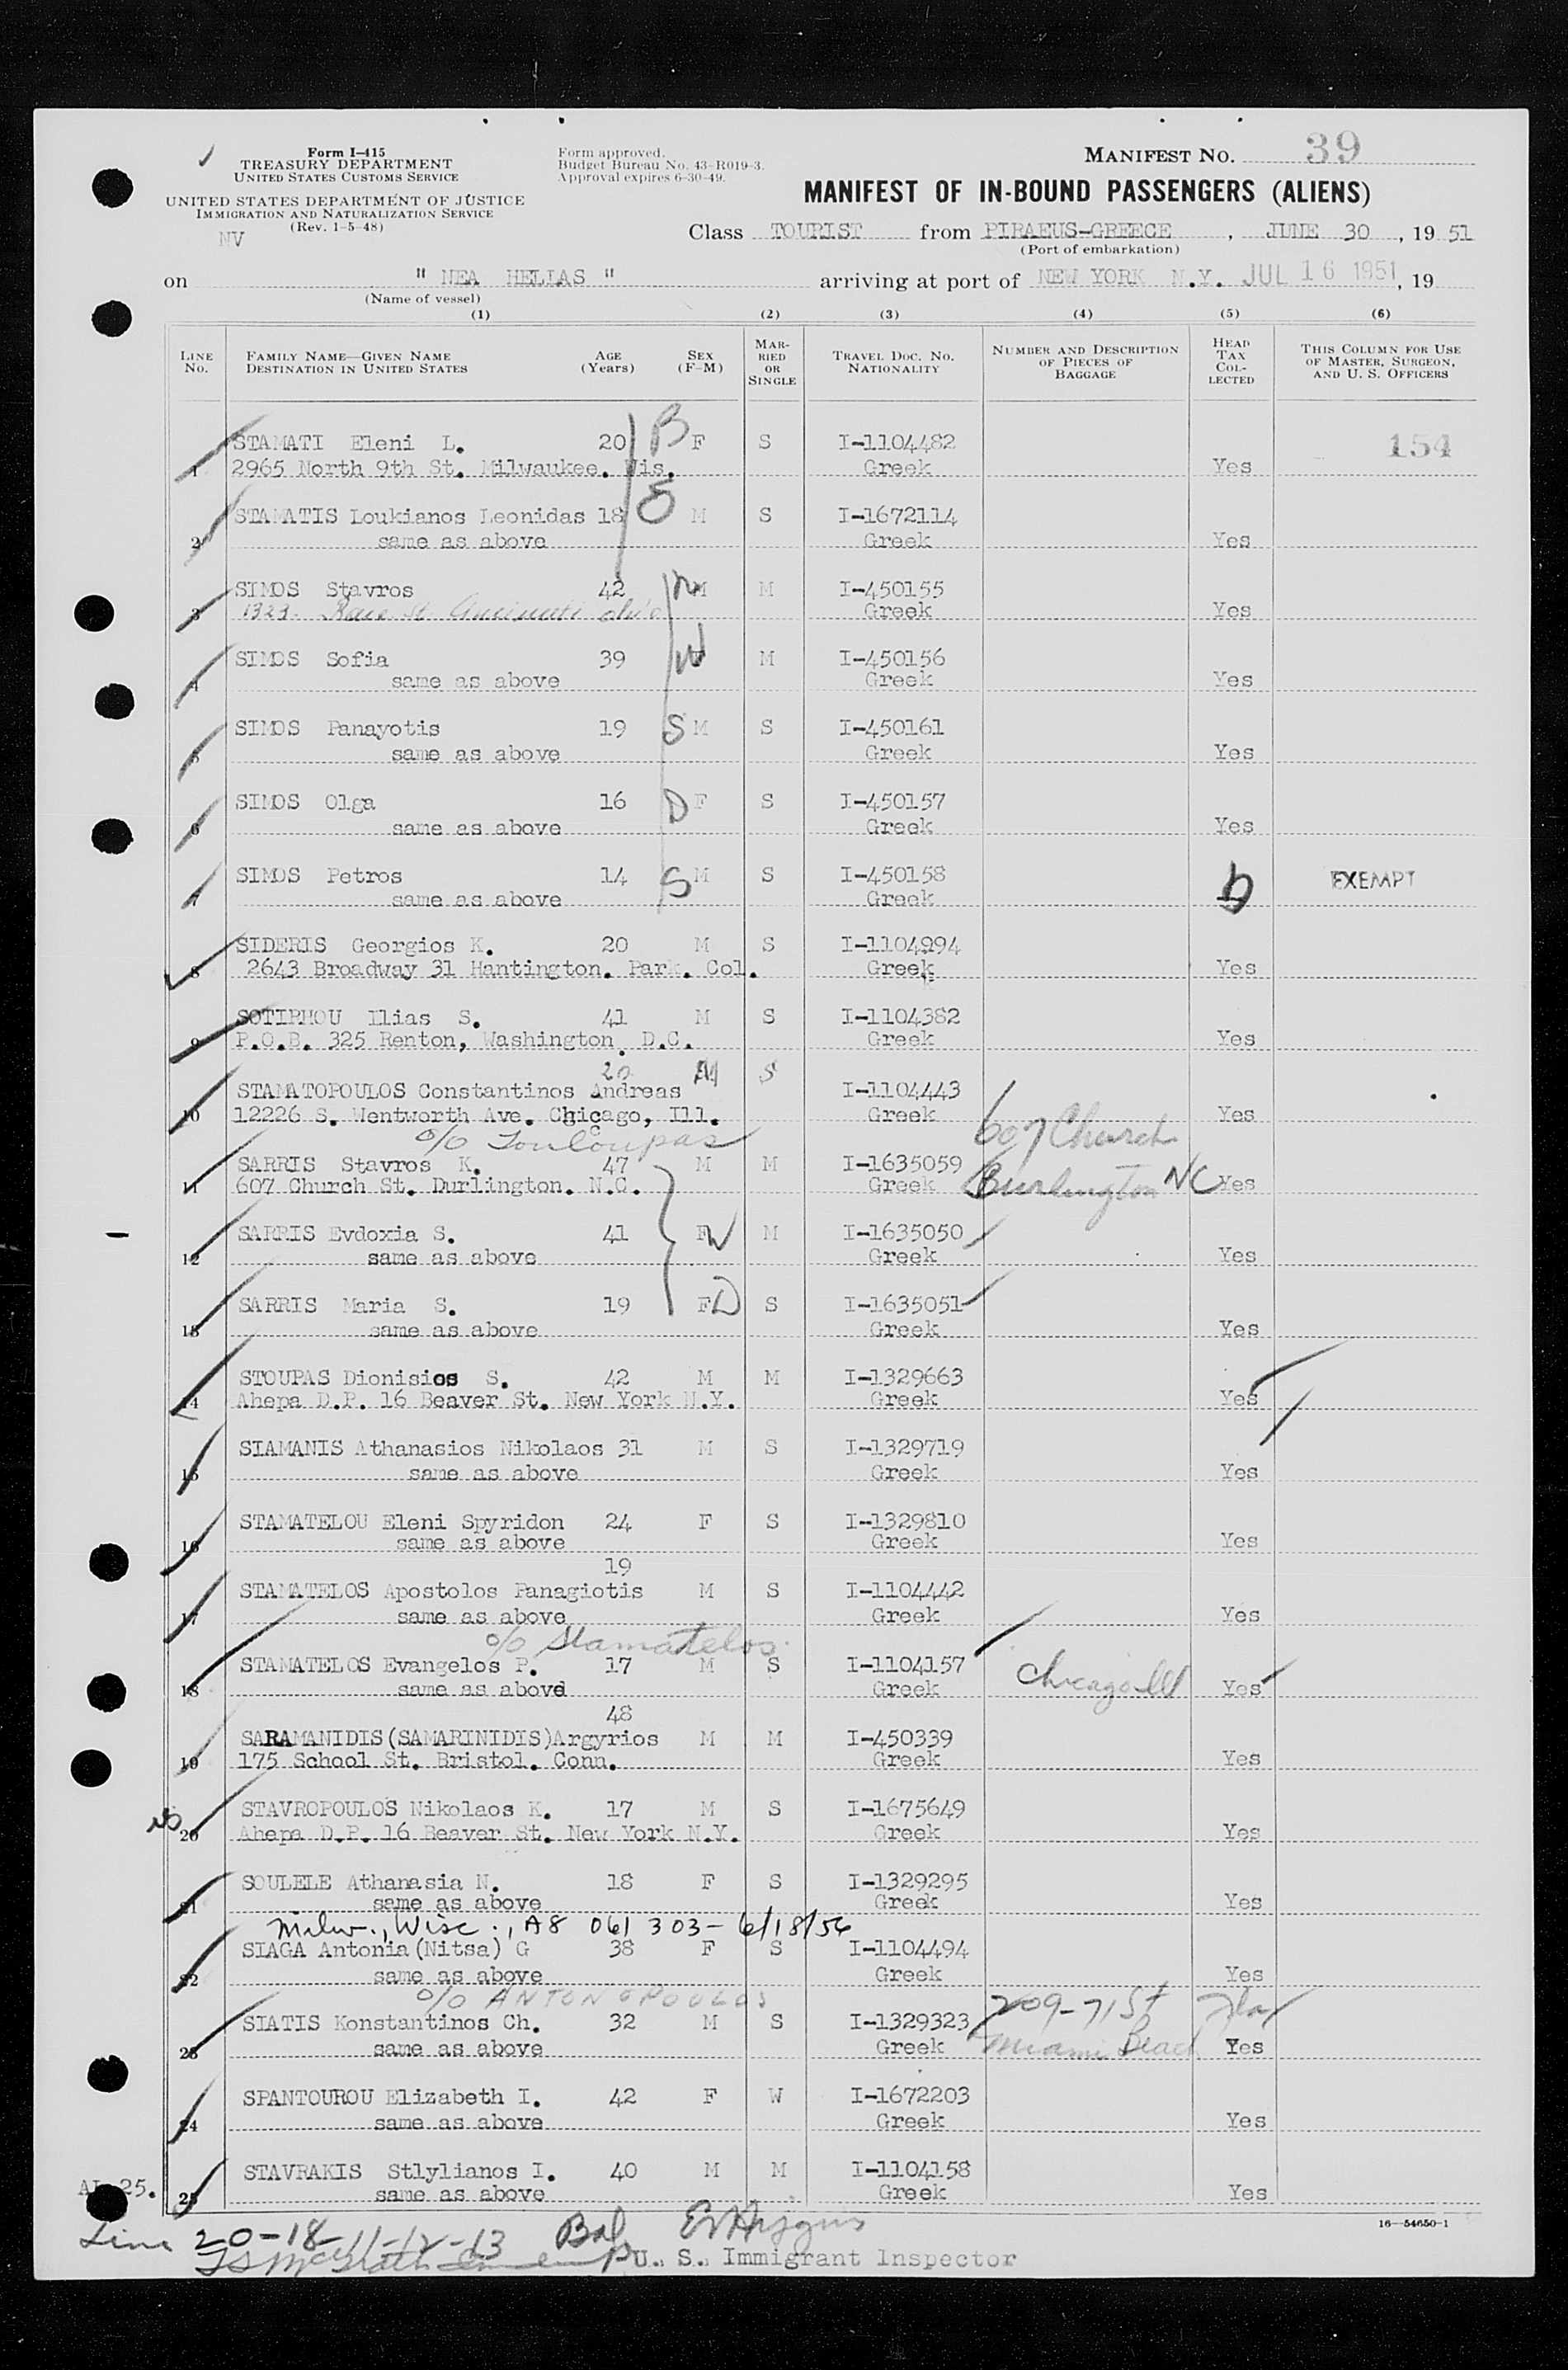 Form I-415
TREASURY DEPARTMENT
UNITED STATES CUSTOMS SERVICE
UNITED STATES DEPARTMENT OF JUSTICE
IMMIGRATION AND NATURALIZATION SERVICE
(Rev. 1-5-48)
NV
Form approved.
Budget Bureau No. 43-R019-3.
Approval expires 6-30-49.
MANIFEST NO. 39
MANIFEST OF IN-BOUND PASSENGERS (ALIENS)
Class TOURIST from PIRAEUS-GREECE, JUNE 30, 19 51
(Port of embarkation)
on " NEA HELLAS " arriving at port of NEW YORK N.Y. JUL 16 1951, 19
(Name of vessel)
(1) (2) (3) (4) (5) (6)
LINE NO.
FAMILY NAME—GIVEN NAME
DESTINATION IN UNITED STATES
AGE (Years)
SEX (F-M)
MARRIED OR SINGLE
TRAVEL DOC. NO.
NATIONALITY
NUMBER AND DESCRIPTION OF PIECES OF BAGGAGE
HEAD TAX COLLECTED
THIS COLUMN FOR USE OF MASTER, SURGEON, AND U. S. OFFICERS
STAMATI Eleni L. 20 B F S I-1104482 154
1 2965 North 9th St. Milwaukee. Wis. Greek Yes
STAMATIS Loukianos Leonidas 18 M S I-1672114
2 same as above Greek Yes
SIMOS Stavros 42 M M I-450155
3 1323 Race St. Cincinnati Ohio Greek Yes
SIMOS Sofia 39 W M I-450156
4 same as above Greek Yes
SIMOS Panayotis 19 S M S I-450161
5 same as above Greek Yes
SIMOS Olga 16 D F S I-450157
6 same as above Greek Yes
SIMOS Petros 14 S M S I-450158 EXEMPT
7 same as above Greek
SIDERIS Georgios K. 20 M S I-1104994
8 2643 Broadway 31 Hantington. Park. Col. Greek Yes
SOTIRHOU Ilias S. 41 M S I-1104382
9 P.O.B. 325 Renton, Washington. D.C. Greek Yes
20 M S
STAMATOPOULOS Constantinos Andreas I-1104443
10 12226 S. Wentworth Ave. Chicago, Ill. Greek Yes
c/o Touloupas 607 Church
SARRIS Stavros K. 47 M M I-1635059
11 607 Church St. Durlington. N.C. Greek Burlington NC Yes
SARRIS Evdoxia S. 41 F W M I-1635050
12 same as above Greek Yes
SARRIS Maria S. 19 F D S I-1635051
13 same as above Greek Yes
STOUPAS Dionisios S. 42 M M I-1329663
14 Ahepa D.P. 16 Beaver St. New York N.Y. Greek Yes
SIAMANIS Athanasios Nikolaos 31 M S I-1329719
15 same as above Greek Yes
STAMATELOU Eleni Spyridon 24 F S I-1329810
16 same as above Greek Yes
19
STAMATELOS Apostolos Panagiotis M S I-1104442
17 same as above Greek Yes
c/o Stamatelos
STAMATELOS Evangelos P. 17 M S I-1104157
18 same as above Greek Chicago Ill Yes
48
SARAMANIDIS(SAMARINIDIS)Argyrios M M I-450339
19 175 School St. Bristol. Conn. Greek Yes
STAVROPOULOS Nikolaos K. 17 M S I-1675649
20 Ahepa D.P. 16 Beaver St. New York N.Y. Greek Yes
SOULELE Athanasia N. 18 F S I-1329295
21 same as above Greek Yes
Milw., Wisc., A8 061 303 - 6/18/56
SIAGA Antonia(Nitsa) G 38 F S I-1104494
22 same as above Greek Yes
c/o ANTONOPOULOS 209-71 St Fla
SIATIS Konstantinos Ch. 32 M S I-1329323
23 same as above Greek Miami Beach Yes
SPANTOUROU Elizabeth I. 42 F W I-1672203
24 same as above Greek Yes
STAVRAKIS Stlylianos I. 40 M M I-1104158
25 same as above Greek Yes
25.
16—54650-1
Line 20-18-11-12-13
U. S. Immigrant Inspector